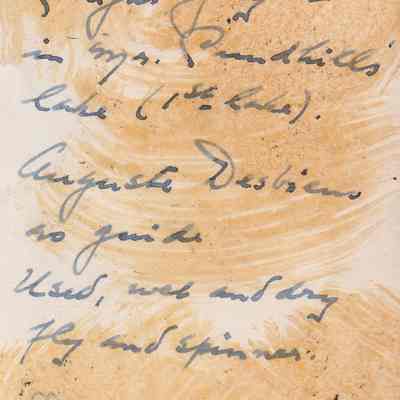 in Mr. Pundhill's
lake (1st lake).
Auguste Desbiens
as guide
Used, wet and dry
fly and spinner.